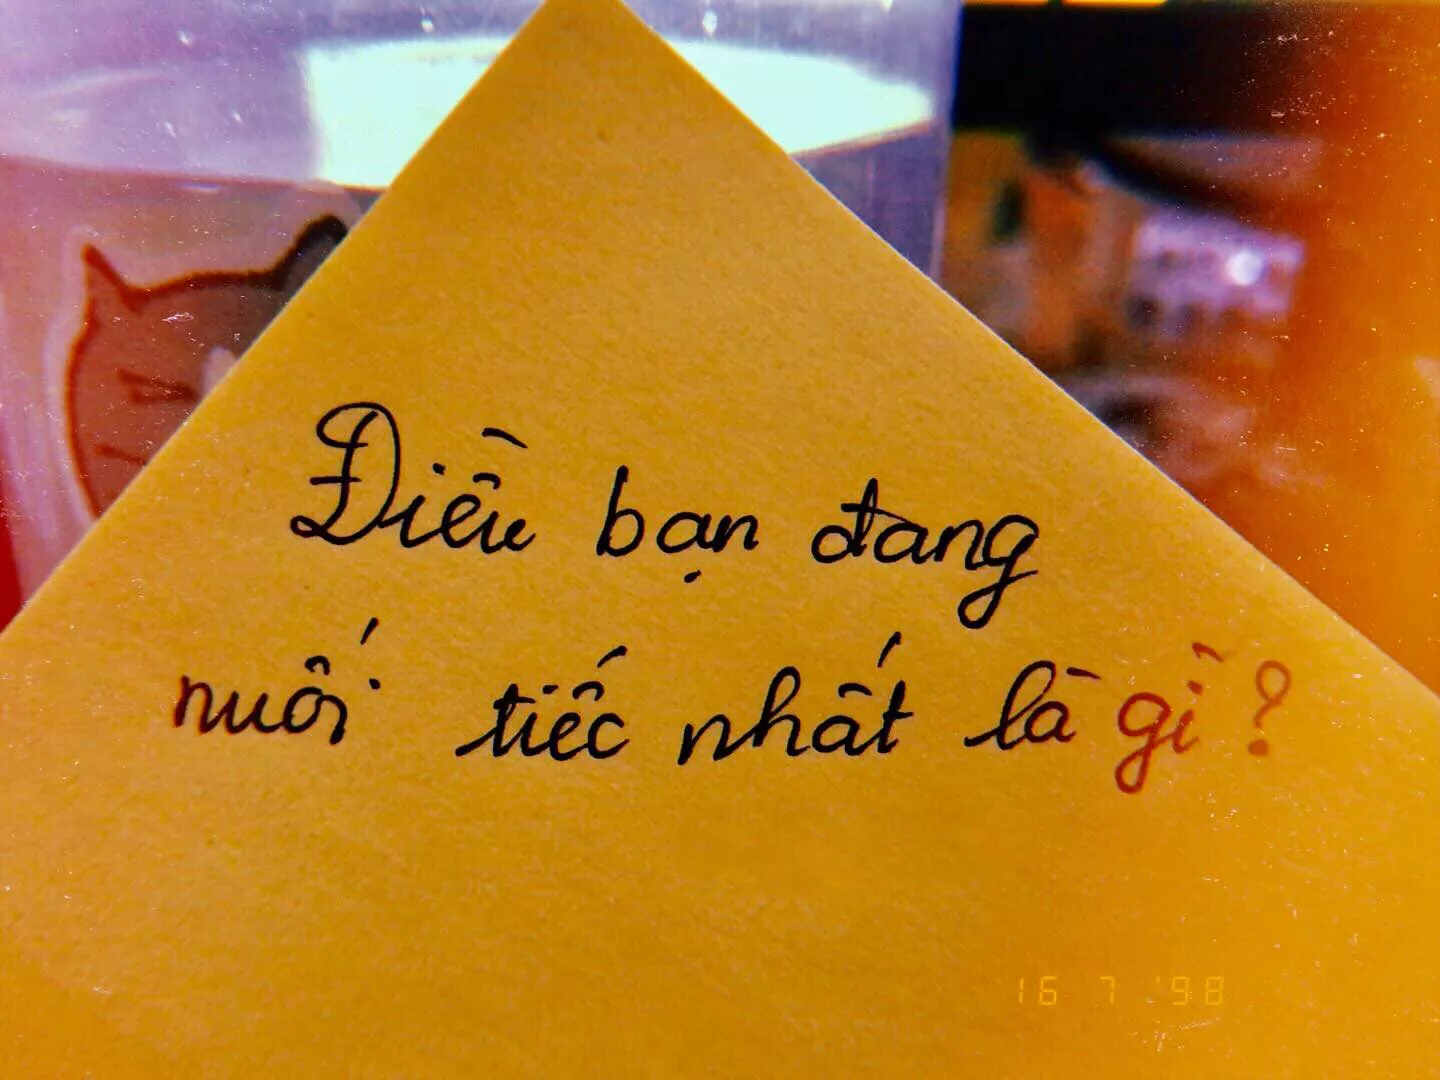 Điều bạn đang
nuối tiếc nhất là gì?
16 7 '98